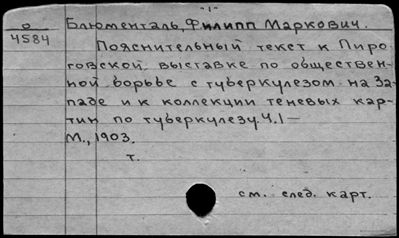 -1-
o Блюменталь, Филипп Маркович.
4584
Пояснительный текст к Пиро-
говской выставке по обществен-
ной борьбе с туберкулезом на За-
паде и к коллекции теневых кар-
тин по туберкулезу. Ч. I —
М., 1903.
т.
см. след. карт.